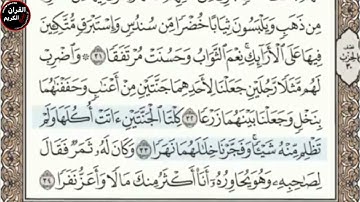 القرآن الكريم
مِن ذَهَبٍ وَيَلْبَسُونَ ثِيَابًا خُضْرًا مِّن سُندُسٍ وَإِسْتَبْرَقٍ مُّتَّكِـِٔينَ
فِيهَا عَلَى ٱلْأَرَآئِكِ ۚ نِعْمَ ٱلثَّوَابُ وَحَسُنَتْ مُرْتَفَقًا ٣١ ۞ وَٱضْرِبْ
لَهُم مَّثَلًا رَّجُلَيْنِ جَعَلْنَا لِأَحَدِهِمَا جَنَّتَيْنِ مِنْ أَعْنَـٰبٍ وَحَفَفْنَـٰهُمَا
بِنَخْلٍ وَجَعَلْنَا بَيْنَهُمَا زَرْعًا ٣٢ كِلْتَا ٱلْجَنَّتَيْنِ ءَاتَتْ أُكُلَهَا وَلَمْ
تَظْلِم مِّنْهُ شَيْـًٔا ۚ وَفَجَّرْنَا خِلَـٰلَهُمَا نَهَرًا ٣٣ وَكَانَ لَهُۥ ثَمَرٌ فَقَالَ
لِصَـٰحِبِهِۦ وَهُوَ يُحَاوِرُهُۥٓ أَنَا۠ أَكْثَرُ مِنكَ مَالًا وَأَعَزُّ نَفَرًا ٣٤